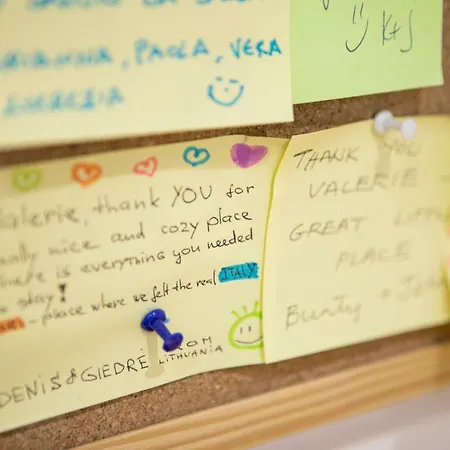 PAOLA, VERA
K+S
Valerie, thank YOU for
really nice and cozy place
there is everything you needed
stay!
- place where we felt the real ITALY
DENIS & GIEDRÉ FROM
LITHUANIA
THANK YOU
VALERIE -
GREAT LITTLE
PLACE